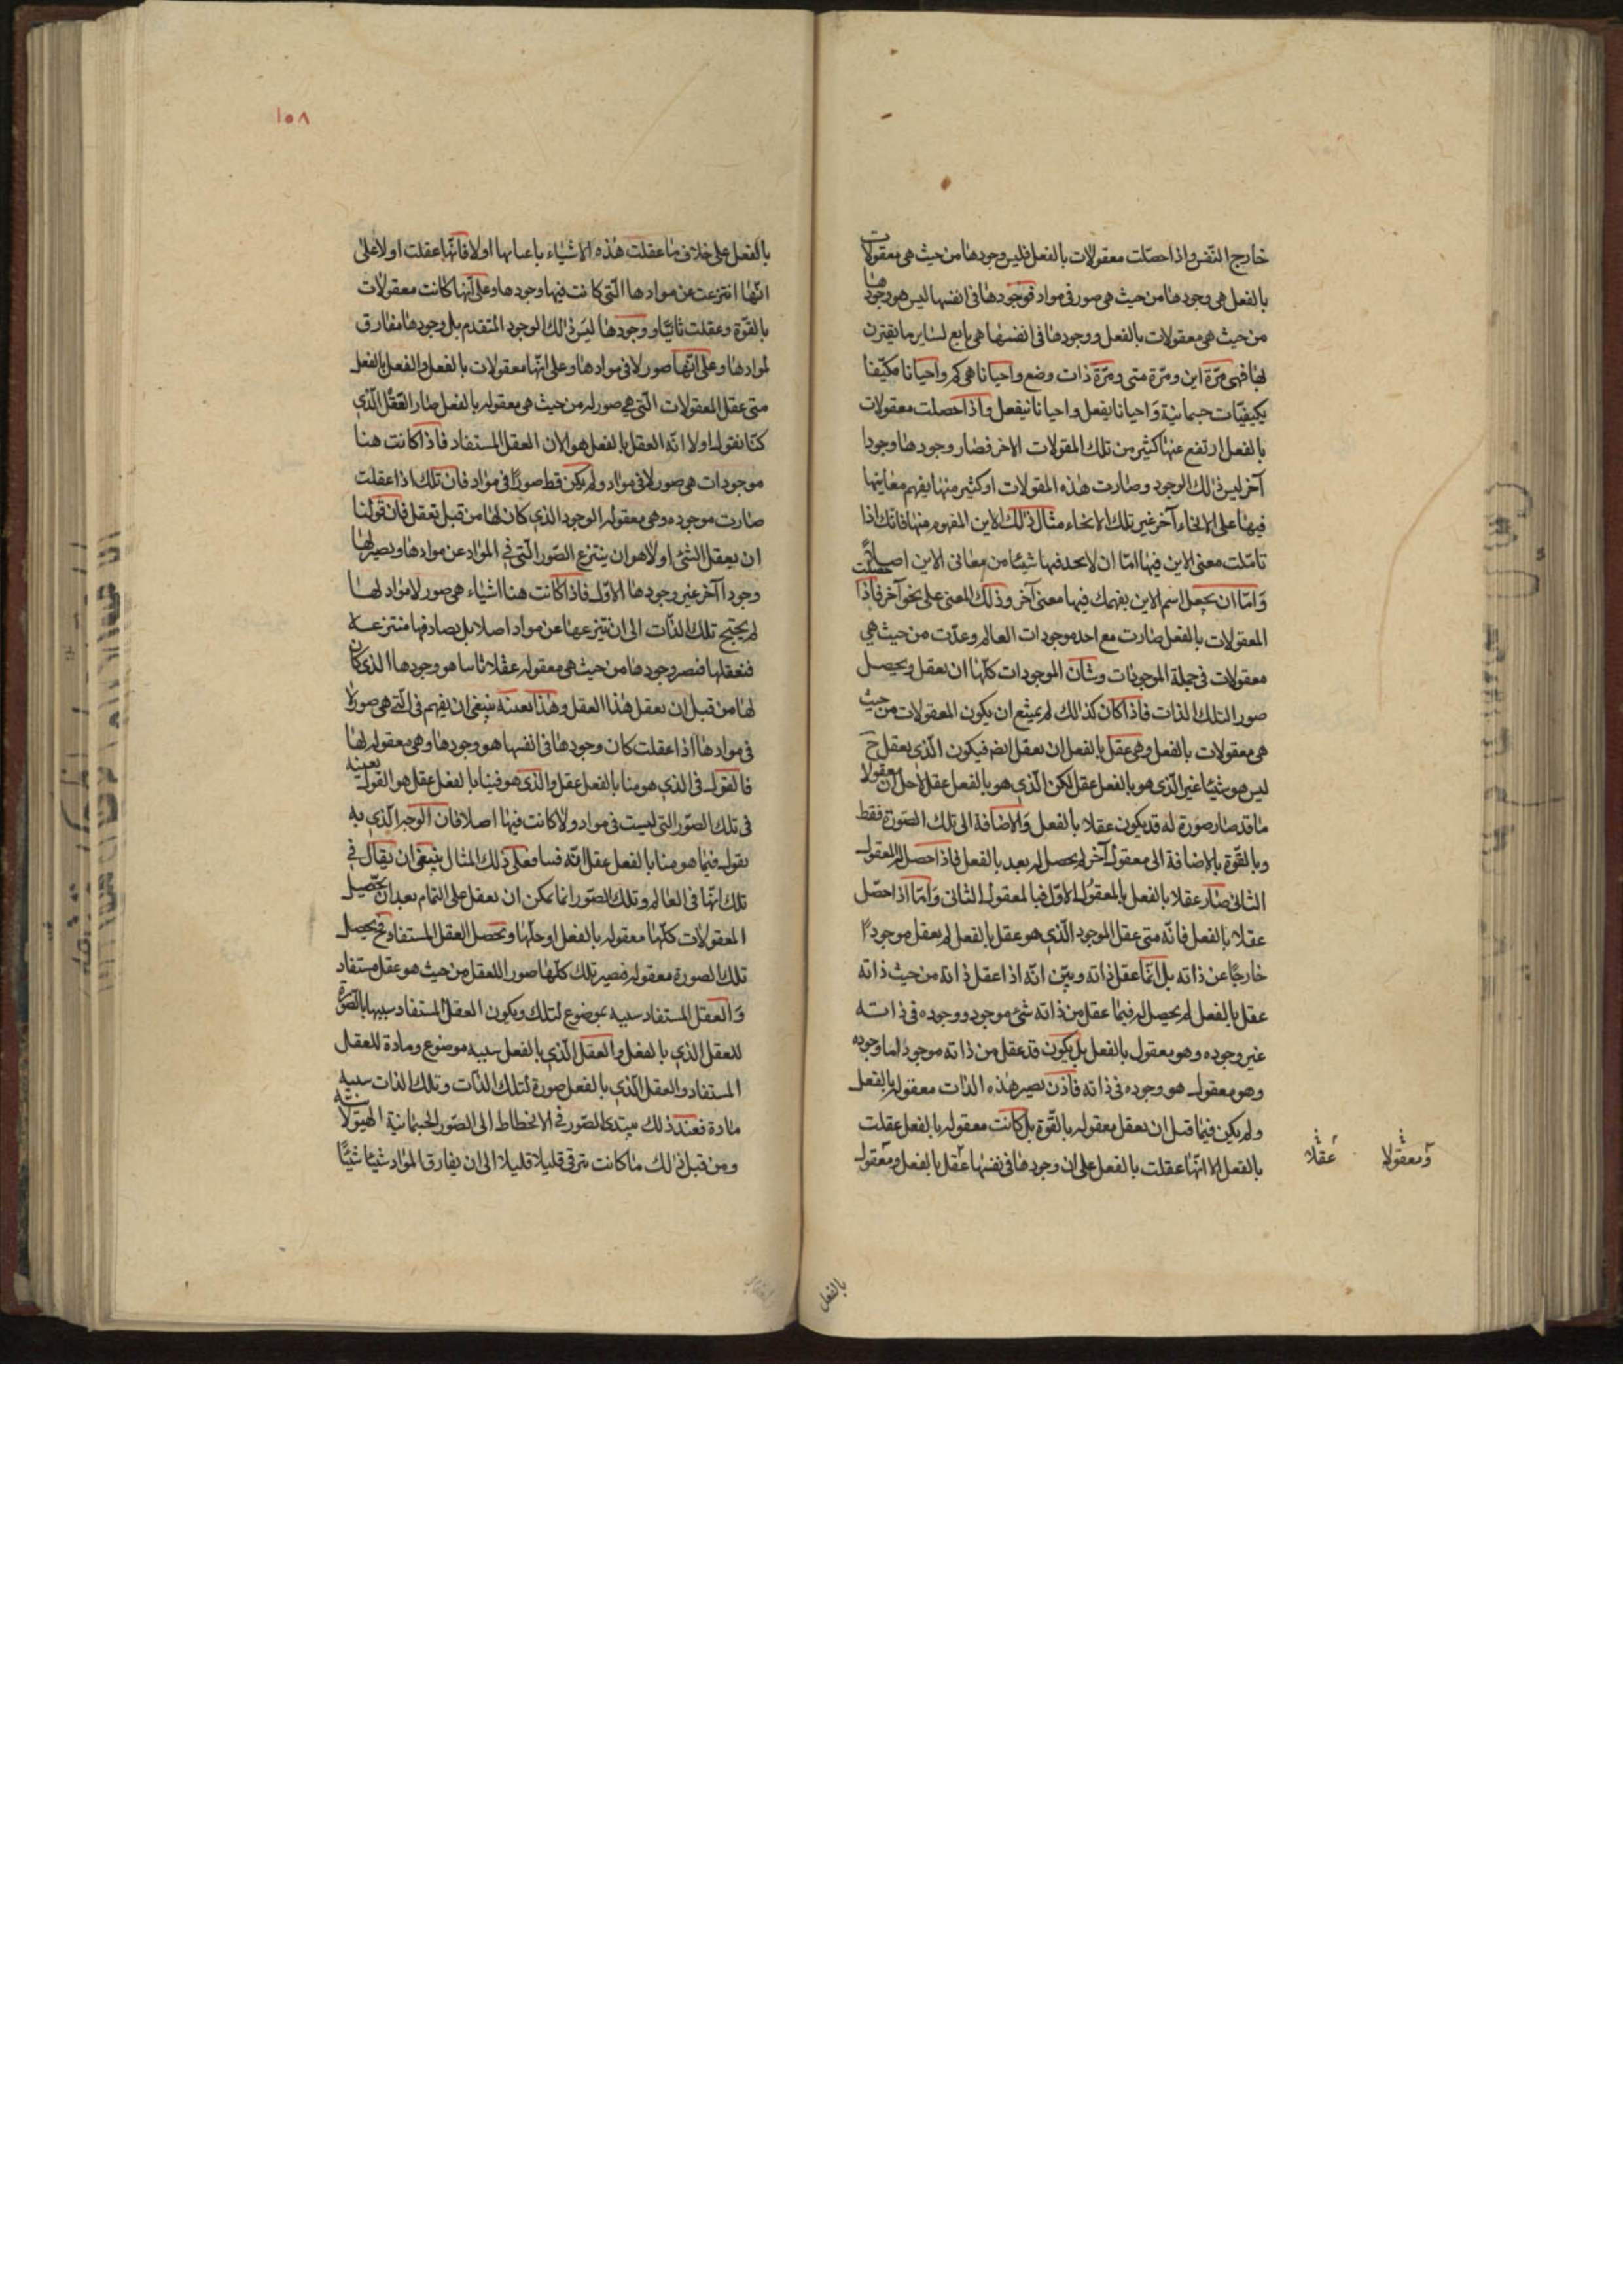 خارج النّفس واذا حصّلت معقولات بالفعل فليس وجودها من حيث هى معقولات
بالفعل هى وجودها من حيث هى صور فى مواد فوجودها فى انفسها ليس هو وجودها
من حيث هى معقولات بالفعل ووجودها فى انفسها هى تابع لساير ما يقترن
لها فهى مرّة اين ومرّة متى ومرّة ذات وضع واحيانا هى كم واحيانا مكيّفا
بكيفيّات جسمانية وَاحيانا يفعل واحيانا ينفعل واذا حصلت معقولات
بالفعل ارتفع عنها كثير من تلك المقولات الاخر فصار وجودها وجودا
آخر ليس ذلك الوجود وصارت هذه المقولات او كثير منها يفهم معانيها
فيها على الانحاء آخر غير تلك الانحاء مثال ذلك الاين المفهوم منها فانّك اذا
تامّلت معنى الاين فيها امّا ان لا تجد فيها شيئا من معانى الاين اصلا
وَامّا ان يجعل اسم الاين يفهمك فيها معنى آخر وذلك المعنى على نحو آخر فاذا حصلت
المعقولات بالفعل صارت مع احد موجودات العالم وعدّت من حيث هى
معقولات فى جملة الموجودات وشان الموجودات كلّها ان تعقل ويحصل
صور التلك الذات فاذا كان كذلك لم يمتنع ان يكون المعقولات من حيث
هى معقولات بالفعل وهى عقل بالفعل ان تعقل ايضه فيكون الّذى يعقل ح
ليس هو شيئا غير الّذى هو بالفعل عقل لكن الّذى هو بالفعل عقل لاجل ان معقولا
ما قد صار صورة له قد يكون عقلا بالفعل وَالاضافة الى تلك الصّورة فقط
وبالقّوة بالاضافة الى معقول آخر لم يحصل له بعد بالفعل فاذا حصل له المعقول
الثانى صار عقلا بالفعل بالمعقول الاوّل فبالمعقول الثانى وَامّا اذا حصّل
عقلا بالفعل فانّه متى عقل الموجود الّذى هو عقل بالفعل لم يعقل موجودًا
خارجًا عن ذاته بل انّما عقل ذاته وبيّن انّه اذا عقل ذاته من حيث ذاته
عقل بالفعل لم يحصل له فيما عقل من ذاته شئ موجود ووجوده فى ذاته
غير وجوده وهو معقول بالفعل بل يكون قد عقل من ذاته موجودا ما وجوده
وهو معقول هو وجوده فى ذاته فاذن تصير هذه الذات معقوله بالفعل
ولم يكن فيما قبل ان تعقل معقوله بالقّوة بل كانت معقوله بالفعل عقلت
بالفعل الا انّها عقلت بالفعل على ان وجودها فى نفسها عقل بالفعل ومعقول
عقلا
ومعقولا
بالفعل
١٥٨
بالفعل على خلاف ما عقلت هذه الاشياء باعيانها اولا فانّها عقلت اولا على
انّها انتزعت عن موادها الّتى كانت فيها وجودها وعلى انّها كانت معقولات
بالقّوة وعقلت ثانيّا ووجودها ليَس ذلك الوجود المتقدم بل وجودها مفارق
لموادها وعلى انّها صور لا فى موادها وعلى انّها معقولات بالفعل والفعل بالفعل
متى عقل المعقولات الّتى هى صور له من حيث هى معقوله بالفعل صار العَقل الّذى
كنّا نقول اولا انّه العقل بالفعل هو الان العقل المستفاد فاذا كانت هنا
موجودات هى صور لا فى مواد ولم يكن قط صورًا فى مواد فان تلك اذا عقلت
صارت موجوده وهى معقوله الوجود الذى كان لها من قبل تعقل فان قولنا
ان يعقل الشئ اولا هو ان ينتزع الصّور الّتى فى المواد عن موادها ويصير لها
وجودا آخر غير وجودها الاوّل فاذا كانت هنا اشياء هى صور لا مواد لها
لم يحتج تلك الذّات الى ان تنتزعها عن مواد اصلا بل يصادفها منتزعة
فتعقلها فيصير وجودها من حيث هى معقوله عقلا ثاسا هو وجودها الذى كان
لها من قبل ان يعقل هذا العقل وهذا بعينه ينبغى ان يفهم فى الّتى هى صور لا
فى موادها اذا عقلت كان وجودها فى انفسها هو وجودها وهى معقوله لها
فالقول فى الذى هو منا بالفعل عقل والذى هو فينا بالفعل عقل هو القول بعينه
فى تلك الصّور التى ليست فى مواد ولا كانت فيها اصلا فان الوجه الّذى به
نقول فيما هو منا بالفعل عقل انّه فينا فعلى ذلك المثال ينبغى ان يقال فى
تلك انّها فى العالم وتلك الصّور انما يمكن ان تعقل على التمام بعد ان تحصّيل
المعقولات كلّها معقوله بالفعل او جلّها وتحصل العقل المستفاد فح يحصل
تلك الصورة معقوله فيصير تلك كلّها صور اللعقل من حيث هو عقل مستفاد
وَالعقل المستفاد سبيه بموضوع لتلك ويكون العقل المستفاد سبيها بالصّورة
للعقل الذى بالفعل والعقل الّذى بالفعل سبيه موضوع ومادة للعقل
المستفاد والعقل الّذى بالفعل صورة لتلك الذّات وتلك الذات سبيه
مادة فعند ذلك يبتدى الصّور فى الانحطاط الى الصّور الجسمانية الهيولانيّه
ومن قبل ذلك ما كانت تترقى قليلا قليلا الى ان يفارق المواد شيئا شيئًا